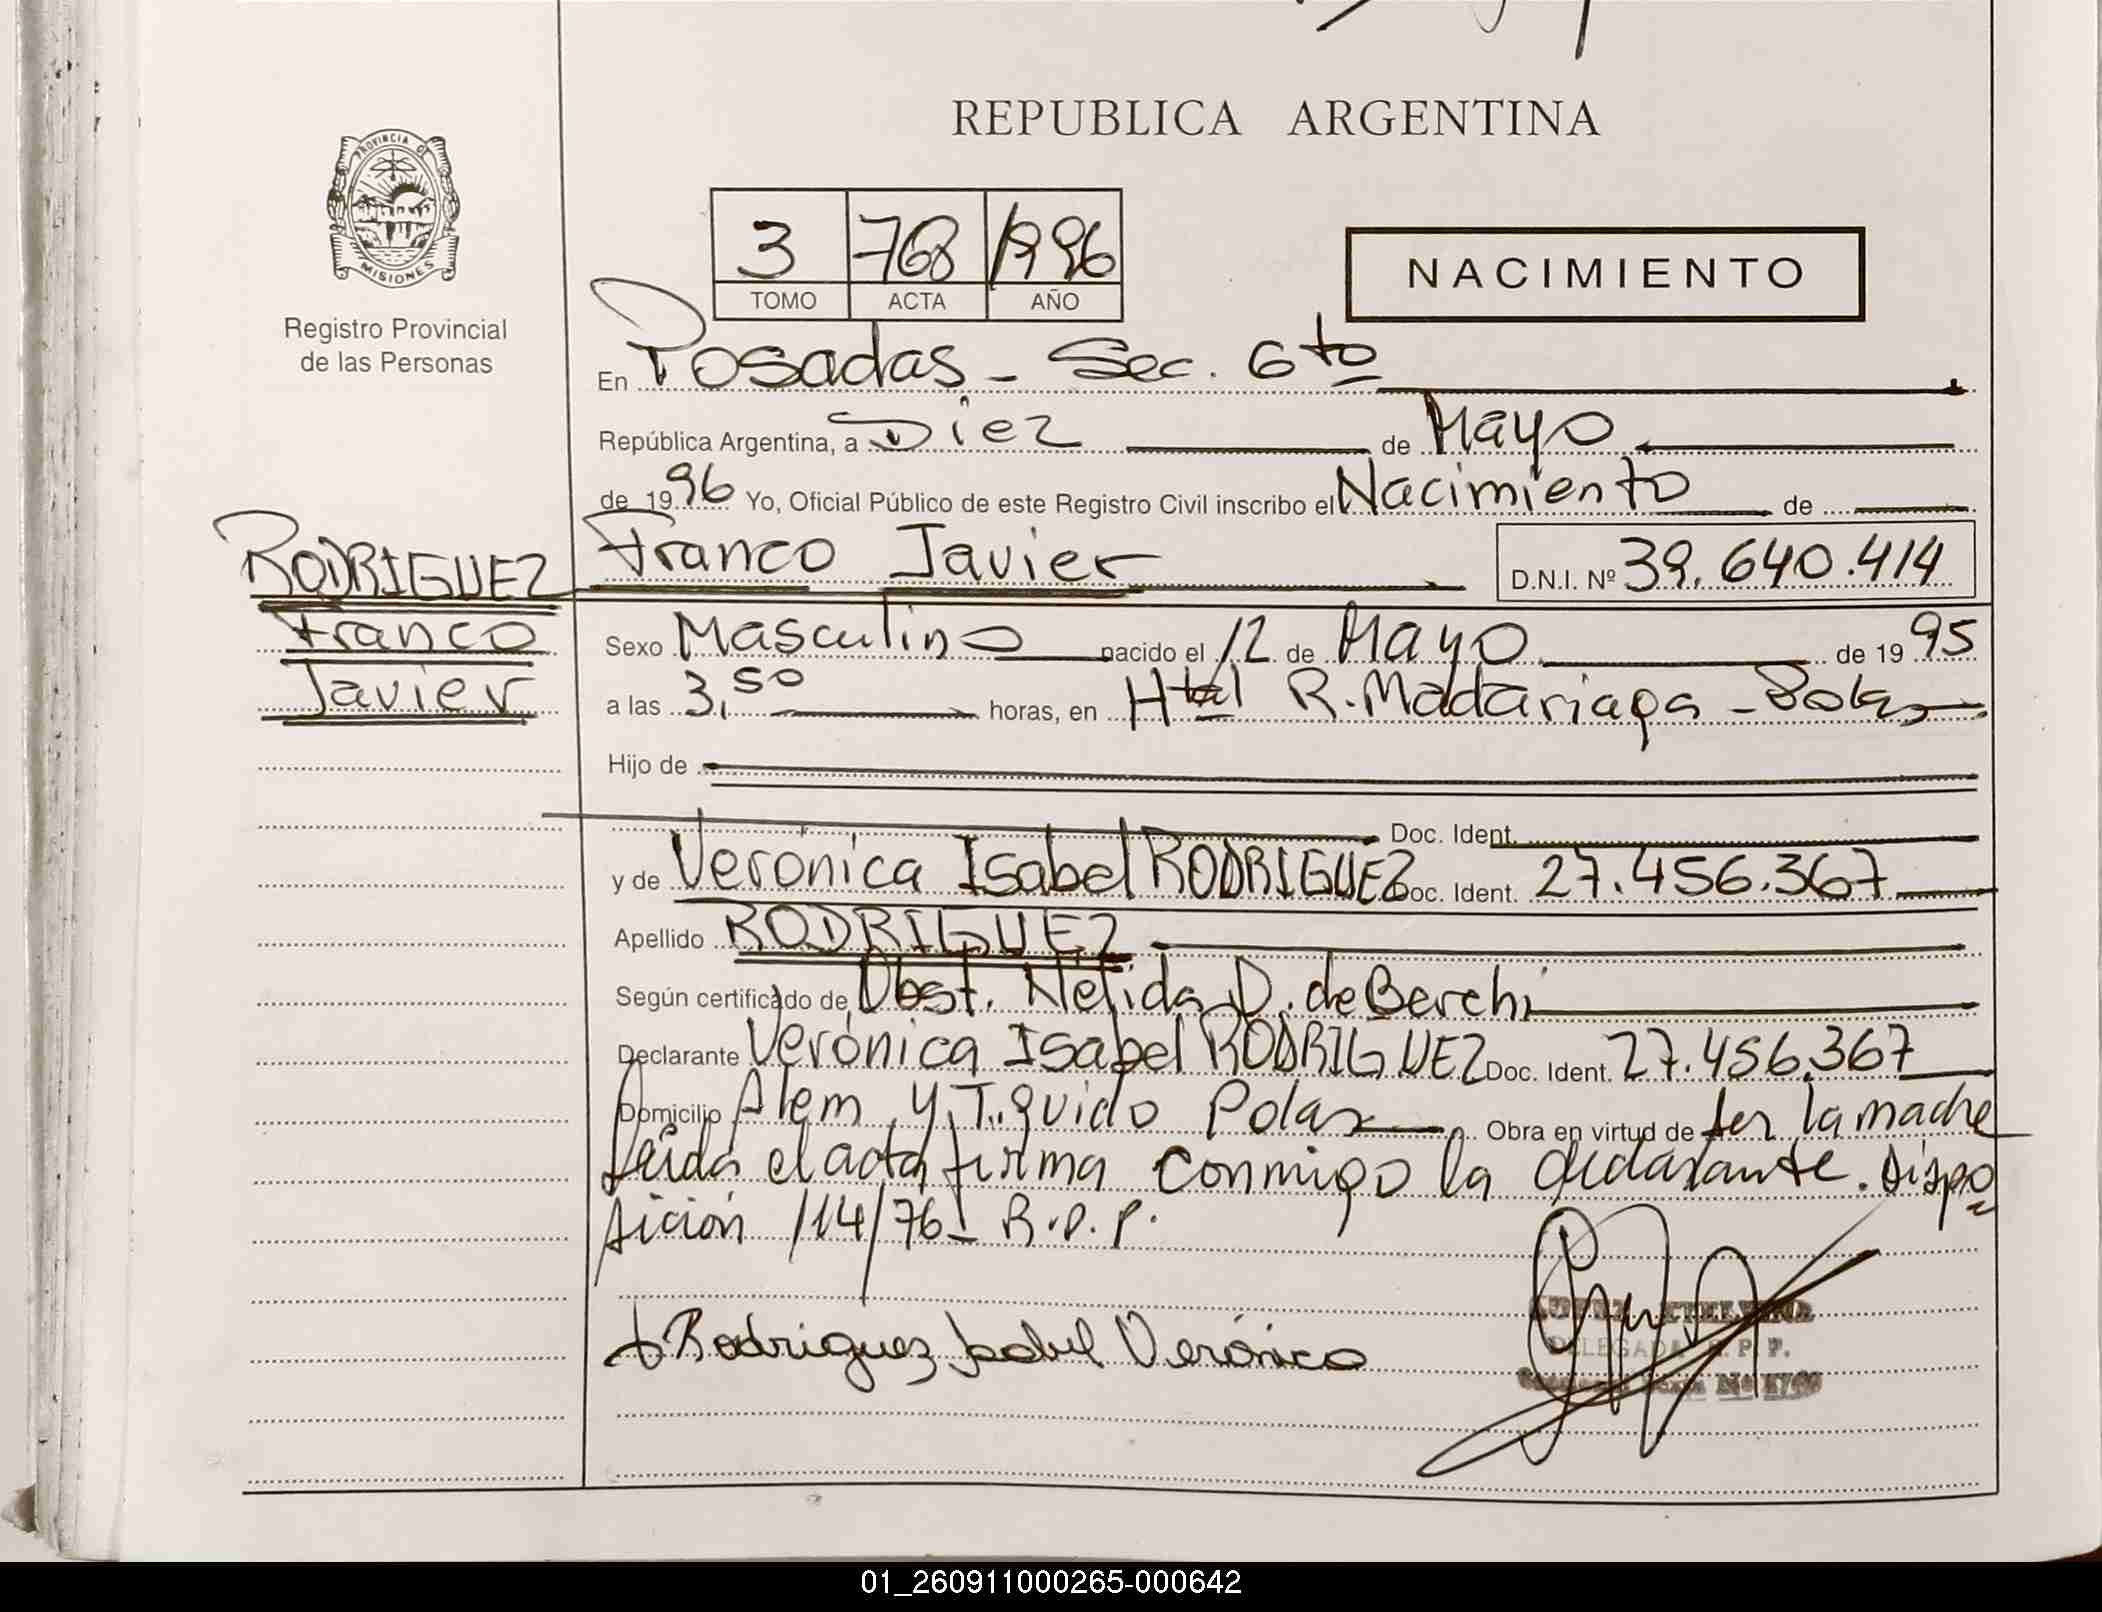 REPUBLICA ARGENTINA
PROVINCIA DE
MISIONES
Registro Provincial
de las Personas
3 768 1996
TOMO ACTA AÑO
NACIMIENTO
En Posadas - Sec. 6to
República Argentina, a Diez de Mayo
de 1996 Yo, Oficial Público de este Registro Civil inscribo el Nacimiento de
RODRIGUEZ
Franco
Javier
Franco Javier D.N.I. Nº 39.640.414
Sexo Masculino nacido el 12 de Mayo de 1995
a las 3,50 horas, en Htal R. Madariaga -
Hijo de
Doc. Ident.
y de Verónica Isabel RODRIGUEZ Doc. Ident. 27.456.367
Apellido RODRIGUEZ
Según certificado de Obst. Nelida D. de Berchi
Declarante Verónica Isabel RODRIGUEZ Doc. Ident. 27.456.367
Domicilio Alem y T. guido Obra en virtud de ser la madre
Leida el acta firma conmigo la declarante. Dispo
sición 114/76 - R.P.P.
Rodriguez Isabel Verónica
DELEGADA R. P. P.
01_260911000265-000642